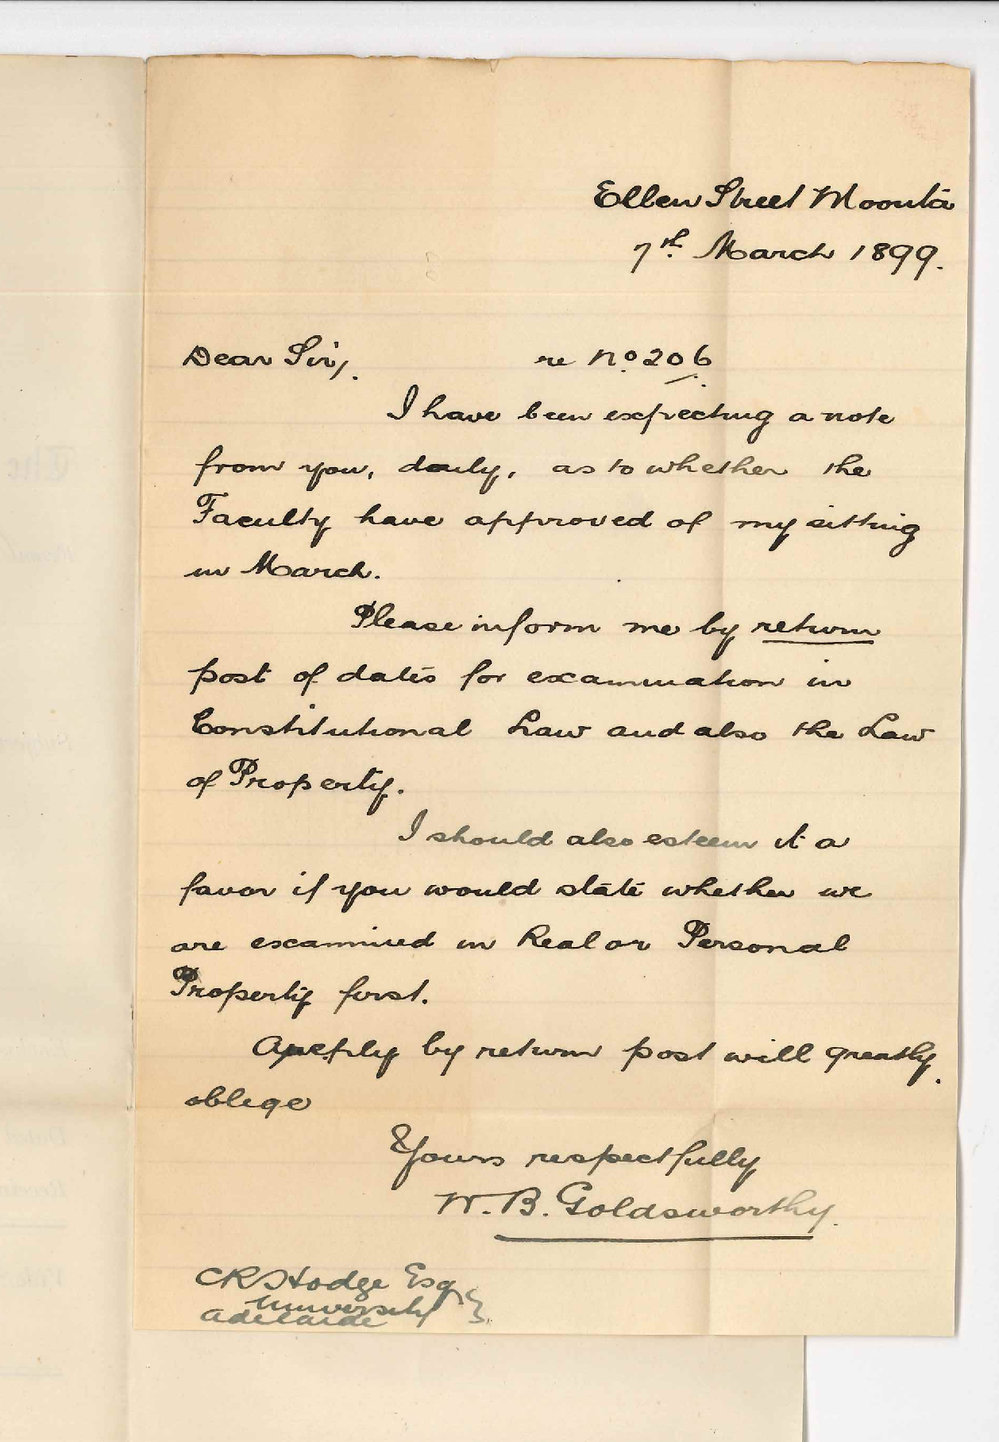 Ellen Street Moonta
7th. March 1899.
Dear Sir, re No. 206
I have been expecting a note
from you, daily, as to whether the
Faculty have approved of my sitting
in March.
Please inform me by return
post of dates for examination in
Constitutional Law and also the Law
of Property.
I should also esteem it a
favor if you would state whether we
are examined in Real or Personal
Property first.
A reply by return post will greatly
oblige
Yours respectfully
W. B. Goldsworthy.
C R Hodge Esq
University
Adelaide